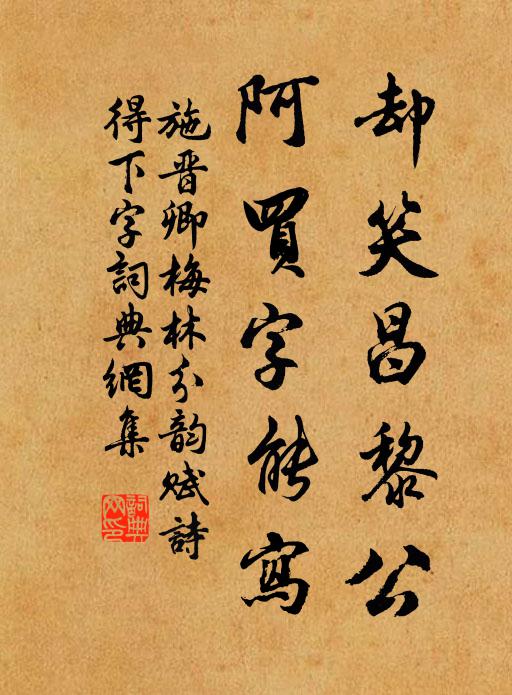 却笑昌黎公
阿買字能寫
施晋卿梅林分韵賦詩
得下字詞典網集
詞典
網印